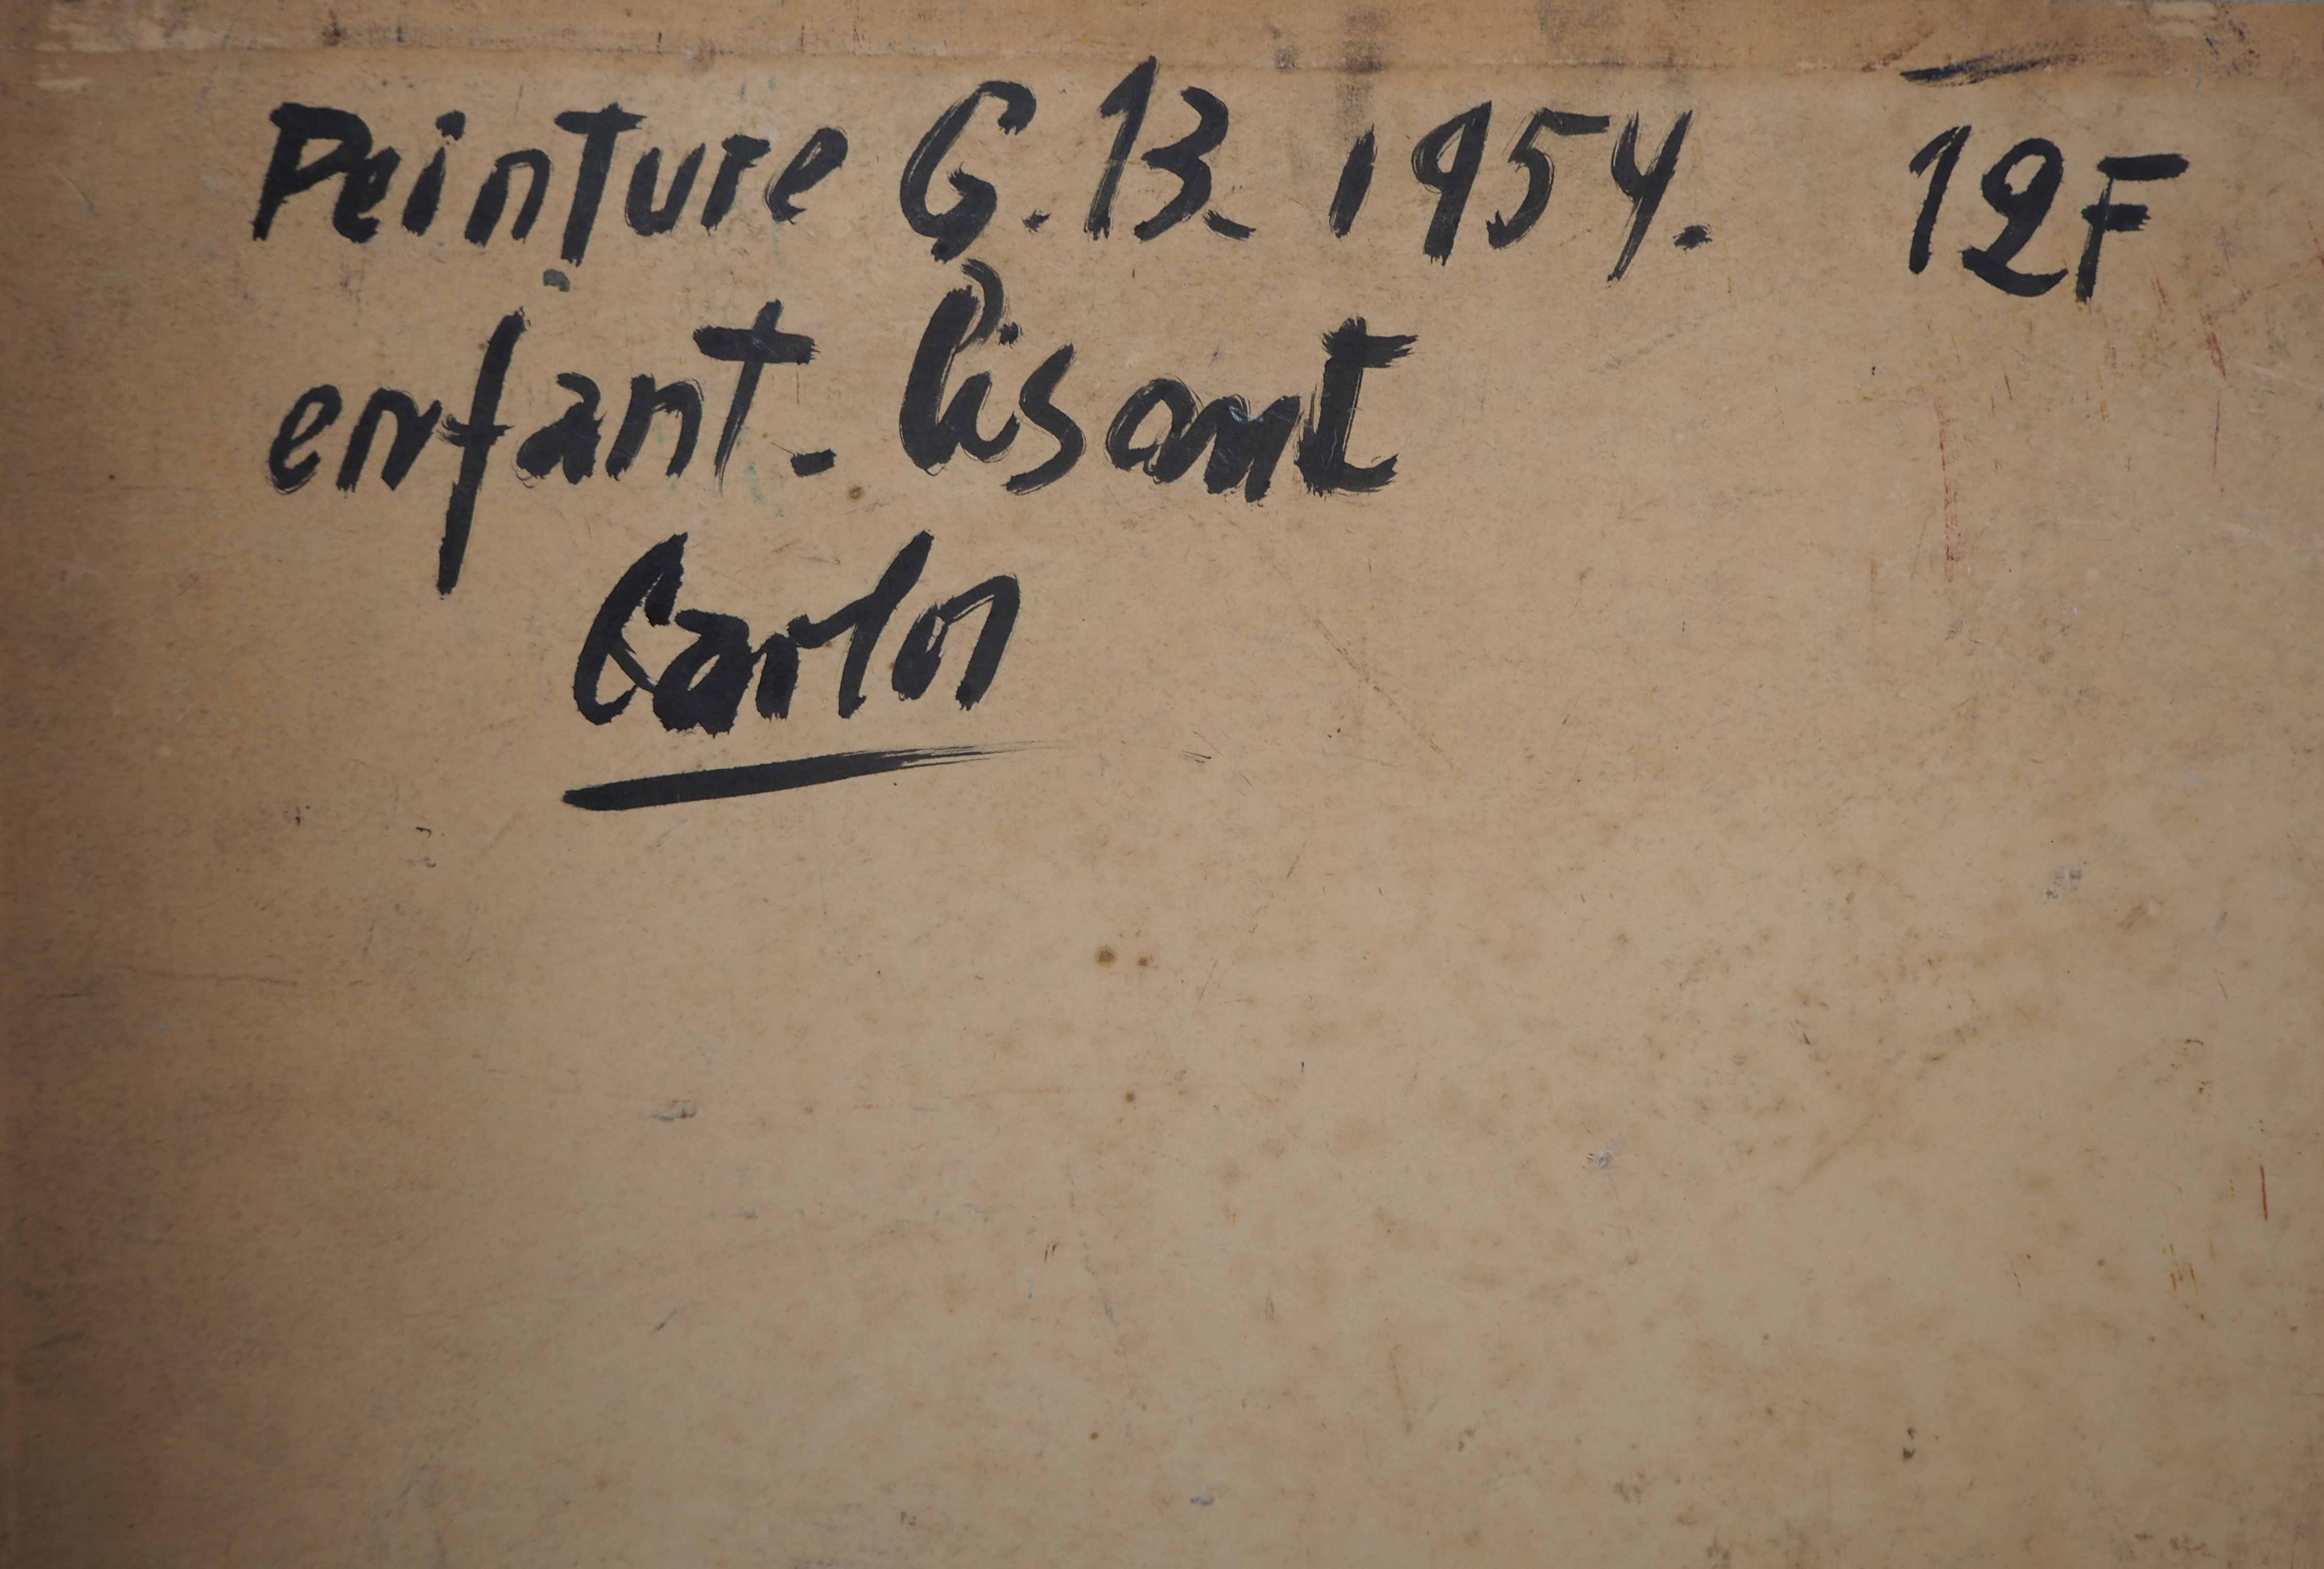 Peinture G. 13_ 1954. 12F
enfant_ lisant
Carlos